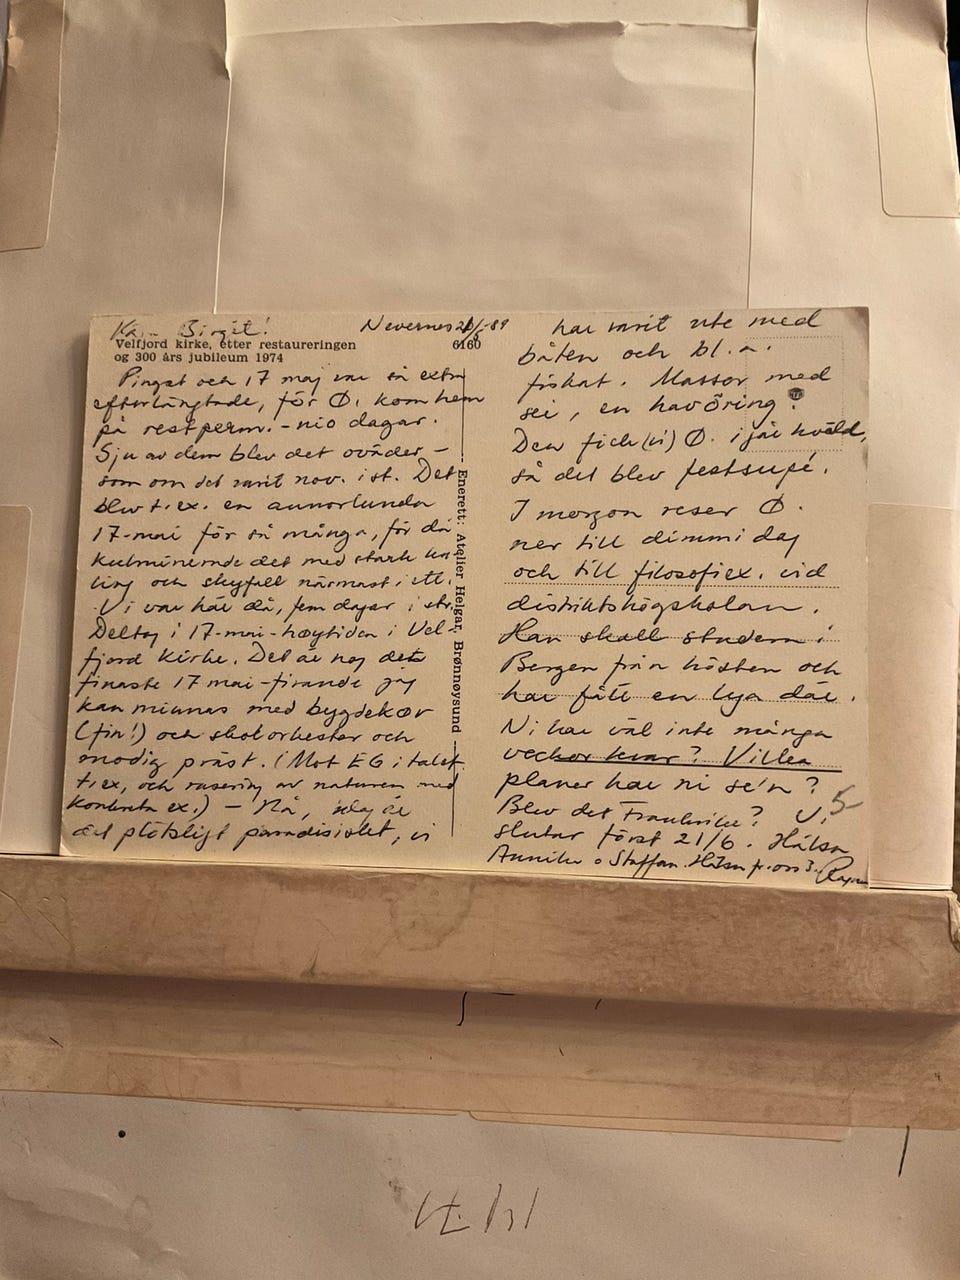 Birgit!
Nevernes
Velfjord kirke, etter restaureringen
6160
og 300 års jubileum 1974
Pingst och 17 maj var så extra
efterlängtade, för Ø. kom hem
på restperm. - nio dagar.
Sju av dem blev det oväder -
som om det varit nov. ist. Det
blev t.ex. en annorlunda
17-mai för så många, för då
kulminerade det med stark
och skyfall närmast i ett.
Vi var här då, fem dagar i str.
Deltog i 17-mai-høytiden i Vel-
fjord kirke. Det är nog det
finaste 17 mai-firande jag
kan minnas med bygdekor
(fin!) och skolorkester och
modig präst. (Mot EG i talet
t.ex, och rasering av naturen med
konkreta ex.) - Nå, idag är
det plötsligt paradisiskt, vi
Enerett: Atelier Helgar, Brønnøysund
har varit ute med
båten och bl.a.
fiskat. Massor med
sei, en havöring.
Den fick (vi) Ø. igår kväld,
så det blev festsupé.
I morgon reser Ø.
ner till dimmidag
och till filosofiex. vid
distriktshögskolan.
Han skall studera i
Bergen från hösten och
har fått en lya där.
Ni har väl inte många
veckor kvar? Vilka
planer har ni se'n?
Blev det Frankrike? V.
slutar först 21/6. Hälsa
Annika o Staffan. Hälsn fr. oss 3.